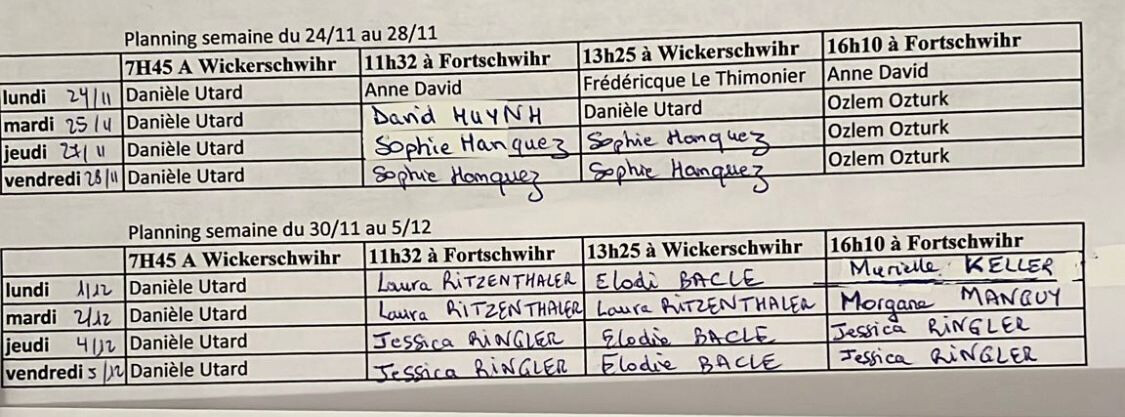 Planning semaine du 24/11 au 28/11
7H45 A Wickerschwihr 11h32 à Fortschwihr 13h25 à Wickerschwihr 16h10 à Fortschwihr
lundi 24/11 Danièle Utard Anne David Frédéricque Le Thimonier Anne David
mardi 25/11 Danièle Utard David HUYNH Danièle Utard Ozlem Ozturk
jeudi 27/11 Danièle Utard Sophie Hanquez Sophie Hanquez Ozlem Ozturk
vendredi 28/11 Danièle Utard Sophie Hanquez Sophie Hanquez Ozlem Ozturk
Planning semaine du 30/11 au 5/12
7H45 A Wickerschwihr 11h32 à Fortschwihr 13h25 à Wickerschwihr 16h10 à Fortschwihr
lundi 1/12 Danièle Utard Laura RITZENTHALER Elodi BACLE Murielle KELLER
mardi 2/12 Danièle Utard Laura RITZENTHALER Laura RITZENTHALER Morgane MANGUY
jeudi 4/12 Danièle Utard Jessica RINGLER Elodie BACLE Jessica RINGLER
vendredi 5/12 Danièle Utard Jessica RINGLER Elodie BACLE Jessica RINGLER